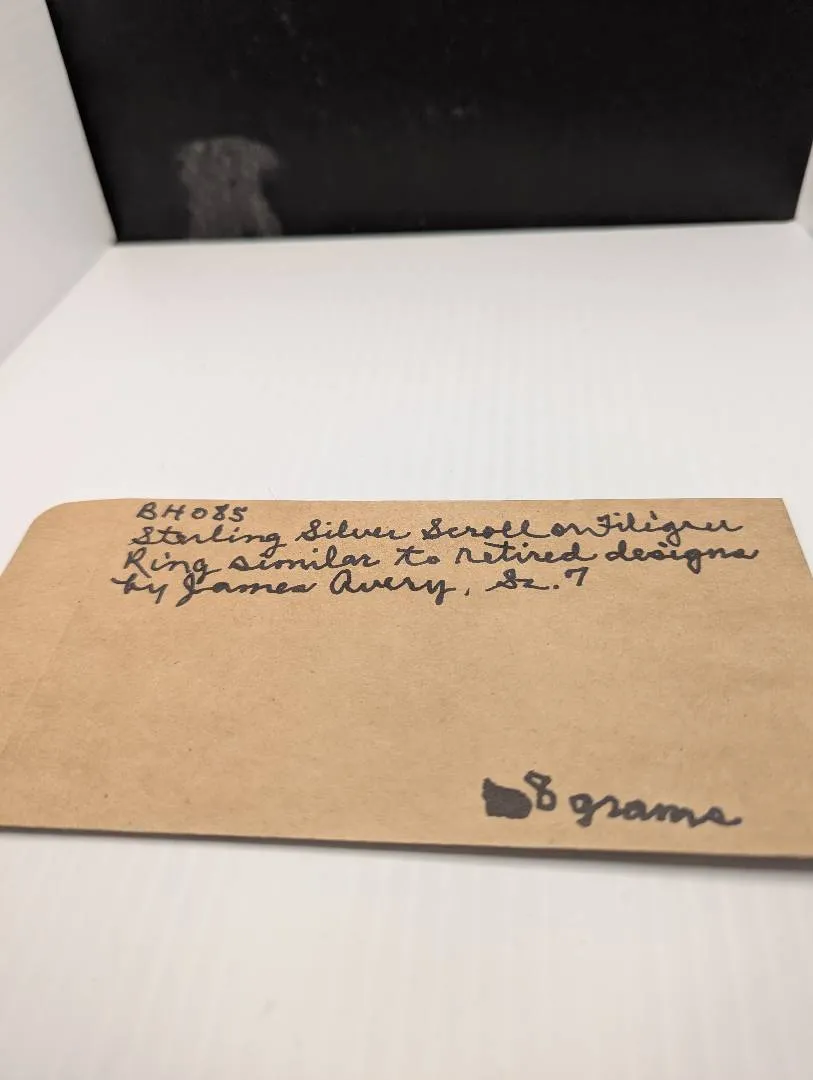 BH085
Sterling Silver Scroll or Filigree
Ring similar to retired designs
by James Avery, Sz. 7
8 grams